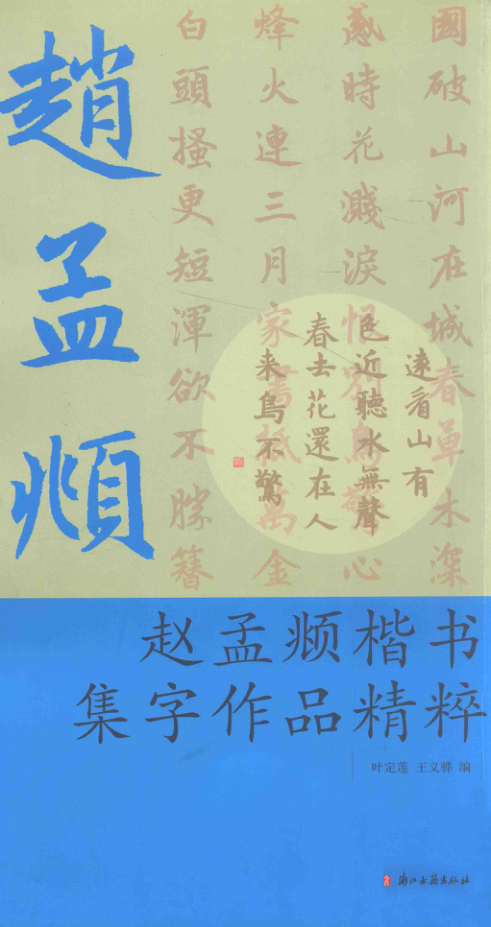 趙孟頫
國破山河在城春草木深
感時花濺淚恨別鳥驚心
烽火連三月家書抵萬金
白頭搔更短渾欲不勝簪
遠看山有
色近聽水無聲
春去花還在人
来鳥不驚
赵孟頫楷书
集字作品精粹
叶定莲 王义骅 编
浙江古籍出版社